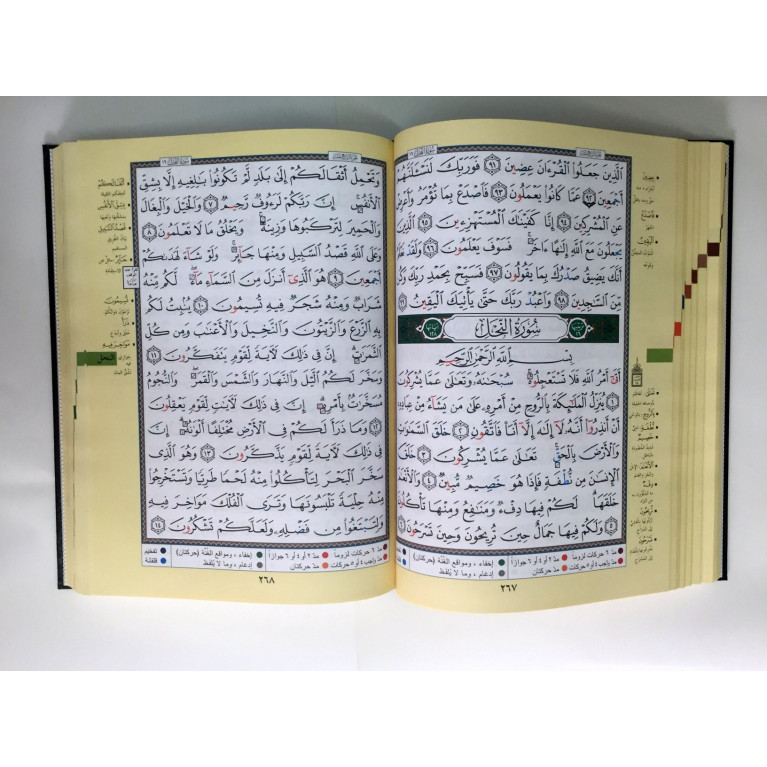 ٱلَّذِينَ جَعَلُوا۟ ٱلْقُرْءَانَ عِضِينَ ٩١ فَوَرَبِّكَ لَنَسْـَٔلَنَّهُمْ
أَجْمَعِينَ ٩٢ عَمَّا كَانُوا۟ يَعْمَلُونَ ٩٣ فَٱصْدَعْ بِمَا تُؤْمَرُ وَأَعْرِضْ
عَنِ ٱلْمُشْرِكِينَ ٩٤ إِنَّا كَفَيْنَٰكَ ٱلْمُسْتَهْزِءِينَ ٩٥ ٱلَّذِينَ
يَجْعَلُونَ مَعَ ٱللَّهِ إِلَٰهًا ءَاخَرَ ۚ فَسَوْفَ يَعْلَمُونَ ٩٦ وَلَقَدْ نَعْلَمُ
أَنَّكَ يَضِيقُ صَدْرُكَ بِمَا يَقُولُونَ ٩٧ فَسَبِّحْ بِحَمْدِ رَبِّكَ وَكُن
مِّنَ ٱلسَّٰجِدِينَ ٩٨ وَٱعْبُدْ رَبَّكَ حَتَّىٰ يَأْتِيَكَ ٱلْيَقِينُ ٩٩
سُورَةُ النَّحْلِ
بِسْمِ ٱللَّهِ ٱلرَّحْمَٰنِ ٱلرَّحِيمِ
أَتَىٰٓ أَمْرُ ٱللَّهِ فَلَا تَسْتَعْجِلُوهُ ۚ سُبْحَٰنَهُۥ وَتَعَٰلَىٰ عَمَّا يُشْرِكُونَ
١ يُنَزِّلُ ٱلْمَلَٰٓئِكَةَ بِٱلرُّوحِ مِنْ أَمْرِهِۦ عَلَىٰ مَن يَشَآءُ مِنْ عِبَادِهِۦٓ
أَنْ أَنذِرُوٓا۟ أَنَّهُۥ لَآ إِلَٰهَ إِلَّآ أَنَا۠ فَٱتَّقُونِ ٢ خَلَقَ ٱلسَّمَٰوَٰتِ
وَٱلْأَرْضَ بِٱلْحَقِّ ۚ تَعَٰلَىٰ عَمَّا يُشْرِكُونَ ٣ خَلَقَ
ٱلْإِنسَٰنَ مِن نُّطْفَةٍ فَإِذَا هُوَ خَصِيمٌ مُّبِينٌ ٤ وَٱلْأَنْعَٰمَ
خَلَقَهَا ۗ لَكُمْ فِيهَا دِفْءٌ وَمَنَٰفِعُ وَمِنْهَا تَأْكُلُونَ
٥ وَلَكُمْ فِيهَا جَمَالٌ حِينَ تُرِيحُونَ وَحِينَ تَسْرَحُونَ ٦
مدّ ٦ حركات لزوماً مدّ ٢ أو ٤ أو ٦ جوازاً إخفاء ، ومواقع الغُنَّة (حركتان)
مدّ واجب ٤ أو ٥ حركات مدّ حركتان إدغام ، وما لا يُلفَظ
٢٦٧
وَتَحْمِلُ أَثْقَالَكُمْ إِلَىٰ بَلَدٍ لَّمْ تَكُونُوا۟ بَٰلِغِيهِ إِلَّا بِشِقِّ
ٱلْأَنفُسِ ۚ إِنَّ رَبَّكُمْ لَرَءُوفٌ رَّحِيمٌ ٧ وَٱلْخَيْلَ وَٱلْبِغَالَ
وَٱلْحَمِيرَ لِتَرْكَبُوهَا وَزِينَةً ۚ وَيَخْلُقُ مَا لَا تَعْلَمُونَ ٨
وَعَلَى ٱللَّهِ قَصْدُ ٱلسَّبِيلِ وَمِنْهَا جَآئِرٌ ۚ وَلَوْ شَآءَ لَهَدَىٰكُمْ
أَجْمَعِينَ ٩ هُوَ ٱلَّذِىٓ أَنزَلَ مِنَ ٱلسَّمَآءِ مَآءً ۖ لَّكُم مِّنْهُ
شَرَابٌ وَمِنْهُ شَجَرٌ فِيهِ تُسِيمُونَ ١٠ يُنۢبِتُ لَكُم
بِهِ ٱلزَّرْعَ وَٱلزَّيْتُونَ وَٱلنَّخِيلَ وَٱلْأَعْنَٰبَ وَمِن كُلِّ
ٱلثَّمَرَٰتِ ۗ إِنَّ فِى ذَٰلِكَ لَءَايَةً لِّقَوْمٍ يَتَفَكَّرُونَ ١١
وَسَخَّرَ لَكُمُ ٱلَّيْلَ وَٱلنَّهَارَ وَٱلشَّمْسَ وَٱلْقَمَرَ ۖ وَٱلنُّجُومُ
مُسَخَّرَٰتٌۢ بِأَمْرِهِۦٓ ۗ إِنَّ فِى ذَٰلِكَ لَءَايَٰتٍ لِّقَوْمٍ يَعْقِلُونَ
١٢ وَمَا ذَرَأَ لَكُمْ فِى ٱلْأَرْضِ مُخْتَلِفًا أَلْوَٰنُهُۥٓ ۗ إِنَّ
فِى ذَٰلِكَ لَءَايَةً لِّقَوْمٍ يَذَّكَّرُونَ ١٣ وَهُوَ ٱلَّذِى
سَخَّرَ ٱلْبَحْرَ لِتَأْكُلُوا۟ مِنْهُ لَحْمًا طَرِيًّا وَتَسْتَخْرِجُوا۟
مِنْهُ حِلْيَةً تَلْبَسُونَهَا وَتَرَى ٱلْفُلْكَ مَوَاخِرَ فِيهِ
وَلِتَبْتَغُوا۟ مِن فَضْلِهِۦ وَلَعَلَّكُمْ تَشْكُرُونَ ١٤
النحل
مدّ ٦ حركات لزوماً مدّ ٢ أو ٤ أو ٦ جوازاً إخفاء ، ومواقع الغُنَّة (حركتان) تفخيم
مدّ واجب ٤ أو ٥ حركات مدّ حركتان إدغام ، وما لا يُلفَظ قلقلة
٢٦٨